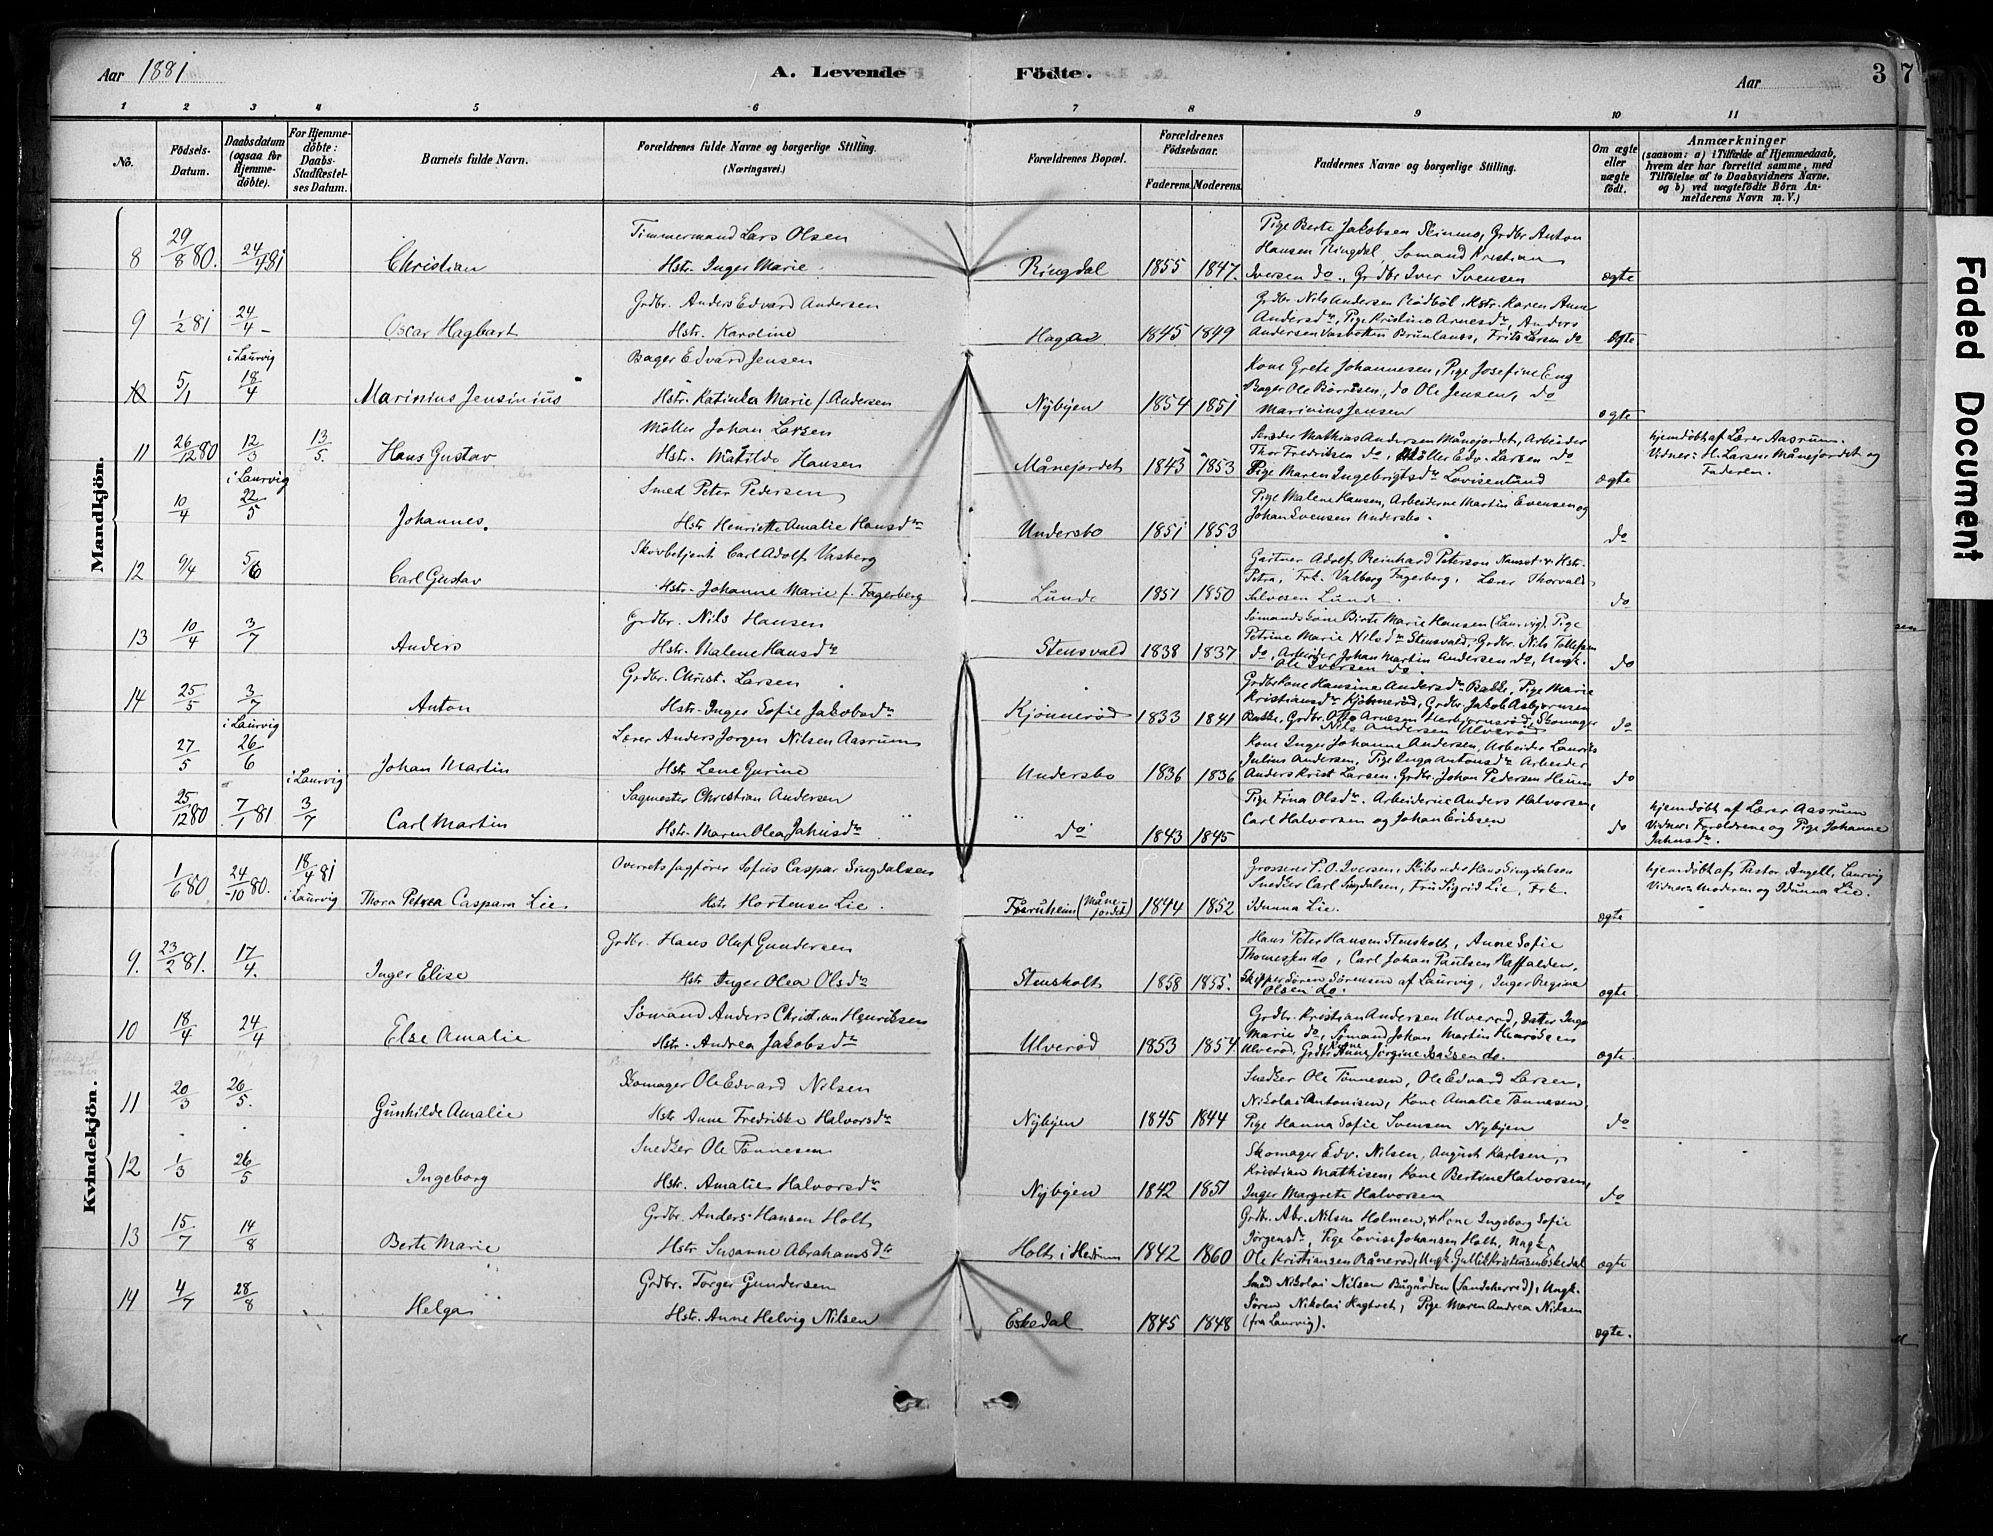 Aar 1881
A. Levende Födte.
Aar 37
1 2 3 4 5 6 7 8 9 10 11
No.
Födsels-Datum.
Daabsdatum (ogsaa for Hjemme-döbte).
For Hjemme-döbte: Daabs-Stadfæstel-ses Datum.
Barnets fulde Navn.
Forældrenes fulde Navne og borgerlige Stilling. (Næringsvei.)
Forældrenes Bopæl.
Forældrenes Födselsaar.
Faderens. Moderens.
Faddernes Navne og borgerlige Stilling.
Om ægte eller uægte födt.
Anmærkninger
(saasom: a) i Tilfælde af Hjemmedaab, hvem der har forrettet samme, med Tilföielse af to Daabsvidners Navne, og b) ved uægtefödte Börn An-melderens Navn m. V.)
Mandkjön.
8 29/8 80. 24/4 81 Christian
Timmermand Lars Olsen
Hstr. Inger Marie
Ringdal 1855 1847.
Pige Berte Jakobsen Skinmo, Grdbr Anton
Hansen Ringdal, Sömand Kristian
Iversen do, Grdbr Iver Svensen
ægte
9 1/2 81 24/4 – Oscar Hagbart
Grdbr. Anders Edvard Andersen
Hstr. Karoline
Hagen 1845 1849
Grdbr Nils Andersen Rödböl, Hstr. Karen Anne
Andersdr, Pige Kristine Arnesdr, Anders
Andersen Vasbotten Brunlanes, Frits Larsen do
ægte
10 5/1 i Laurvig 18/4 Marinius Jensinius
Bager Edvard Jensen
Hstr. Katinka Marie f. Andersen
Nybyen 1854 1851
Kone Grete Johannesen, Pige Josefine Eng
Bager Ole Börresen, do Ole Jensen, do
Marinius Jensen
ægte
11 26/12 80 12/3 13/5. Hans Gustav
Möller Johan Larsen
Hstr. Matilde Hansen
Månejordet 1843 1853
Mathias Andersen Månejordet, Arbeider
Thor Fredriksen do, Möller Edv. Larsen do
Pige Maren Ingebrigtsdr Lovisenlund
ægte
hjemdöbt af Lærer Aasrum.
Vidner: H. Larsen Månejordet og
Faderen.
10/4 i Laurvig 22/5 Johannes.
Smed Peter Pedersen
Hstr Henriette Amalie Hansdr
Undersbo 1851 1853
Pige Malene Hansen, Arbeiderne Martin Evensen og
Johan Svensen Undersbo.
do
12 9/4 5/6 Carl Gustav
Skovbetjent Carl Adolf Vasberg
Hstr. Johanne Marie f. Fagerberg
Lunde 1851 1850
Gartner Adolf Reinhard Peterson Nanset & Hstr.
Petra, Frk. Valborg Fagerberg, Lærer Thorvald
Salvesen Lunde.
do
13 10/4 3/7 Anders
Grdbr. Nils Hansen
Hstr. Malene Hansdr
Stensvald 1838 1837
Sömands Gone Birte Marie Hansen (Laurvig), Pige
Petrine Marie Nilsdr Stensvald, Grdbr. Nils Tollefsen
do, Arbeider Johan Martin Andersen do, Ungk.
Ole Iversen do
do
14 25/5 3/7 Anton
Grdbr. Christ. Larsen
Hstr. Inger Sofie Jakobsdr
Kjönneröd 1833 1841
Grdbrkone Hansine Andersdr Bakke, Pige Marie
Kristiansdr Kjönneröd, Grdbr. Jakob Asbjörnsen
Bakke, Grdbr. Otto Arnesen Herbjörnsröd, Skomager
Nils Andersen Ulveröd
do
27/5 i Laurvig 26/6 Johan Martin
Lærer Anders Jörgen Nilsen Aasrum
Hstr Lene Gurine
Undersbo 1836 1836
Kone Inger Johanne Andersen, Arbeider Laurits
Julius Andersen, Pige Inga Antonsdr Arbeider
Anders Krist Larsen. Grdbr. Johan Pedersen Heum
do
25/12 80 7/1 81 i Laurvig 3/7 Carl Martin
Sagmester Christian Andersen
Hstr. Maren Olea Jahnsdr
do 1843 1845
Pige Fina Olsdr. Arbeiderne Anders Halvorsen,
Carl Halvorsen og Johan Eriksen
do
hjemdöbt af Lærer Aasrum
Vidner: Forældrene og Pige Johanne
Jahnsdr.
Kvindekjön.
1/6 80 24/10 80. 18/4 81 i Laurvig Thora Petrea Caspara Lie.
Overretssagförer Sofus Caspar Singdalsen
Hstr Hortense Lie.
Furuheim (Månejordet) 1844 1852
Grosserer P. O. Iversen, Hans Singdalsen
Snedker Carl Singdalsen, Fru Sigrid Lie, Frk.
Idunna Lie.
ægte
hjemdöbt af Pastor Angell, Laurvig
Vidner: Moderen og Idunna Lie.
9. 23/2 81. 17/4. Inger Elise
Grdbr. Hans Oluf Gundersen
Hstr Inger Olea Olsdr
Stensholt 1858 1855.
Hans Peter Hansen Stensholt, Anne Sofie
Thomesen do, Carl Johan Paulsen Haffalden,
Skipper Sören Sörensen af Laurvig, Inger Regine
Olsen do.
ægte
10 18/4 24/4 Else Amalie
Sömand Anders Christian Henriksen
Hstr. Andrea Jakobsdr
Ulveröd 1853 1854
Grdbr. Kristian Andersen Ulveröd, Datter Inga
Marie do, Sömand Johan Martin Henriksen
Ulveröd. Grdbr Kone Anne Jörgine Isaksen do.
ægte.
11 20/3 26/5. Gunhilde Amalie
Skomager Ole Edvard Nilsen
Hstr Anne Fredrikke Halvorsdr
Nybyen 1845 1844
Snedker Ole Tönnesen, Ole Edvard Larsen,
Nikolai Antonisen, Kone Amalie Tönnesen,
Pige Hanna Sofie Svensen Nybyen
do
12 1/3 26/5 Ingeborg
Snedker Ole Tönnesen
Hstr. Amalie Halvorsdr
Nybyen 1842 1851
Skomager Edv. Nilsen, August Karlsen,
Kristian Mathisen, Kone Bertine Halvorsen,
Inger Margrete Halvorsen
do
13 15/7 14/8 Berte Marie
Grdbr. Anders Hansen Holt
Hstr Susanne Abrahamsdtr
Holt i Hedrum 1842 1860
Grdbr. Abr. Nilsen Holmen, & Kone Ingeborg Sofie
Jörgensdr, Pige Lovise Johansen Holt, Ungk.
Ole Kristiansen Råneröd, Ungk. Gullik Kristensen Eskedal
ægte
14 4/7 28/8 Helga
Grdbr. Torger Gundersen
Hstr. Anne Helvig Nilsen
Eskedal 1845 1848
Smed Nikolai Nilsen Bugården (Sandeherred), Ungk.
Sören Nikolai Hagtvet, Pige Maren Andrea Nilsen
(fra Laurvig).
ægte.
Faded Document